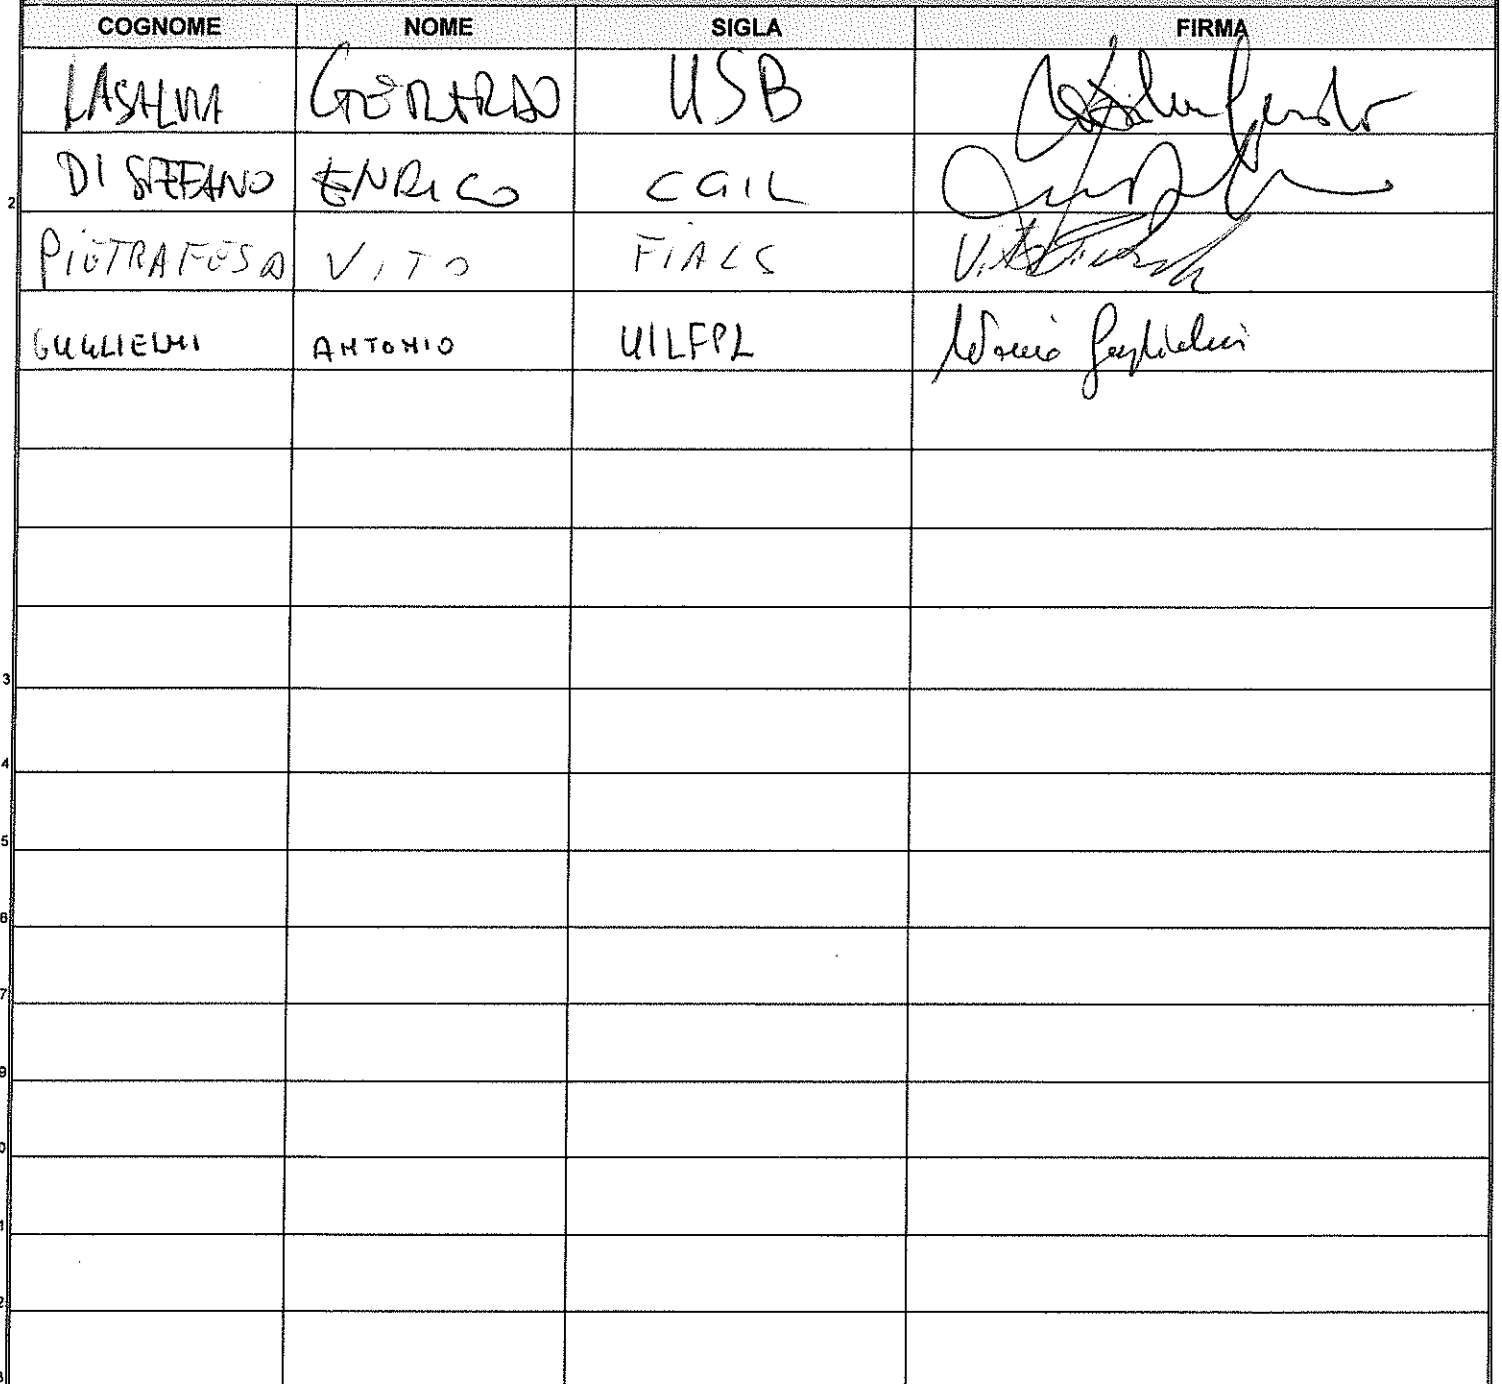 COGNOME NOME SIGLA FIRMA
LASALVIA GERARDO USB
DI STEFANO ENRICO CGIL
2
PIETRAFESA VITO FIALS
GUGLIELMI ANTONIO UILFPL Antonio Guglielmi
3
4
5
6
7
9
0
1
2
3